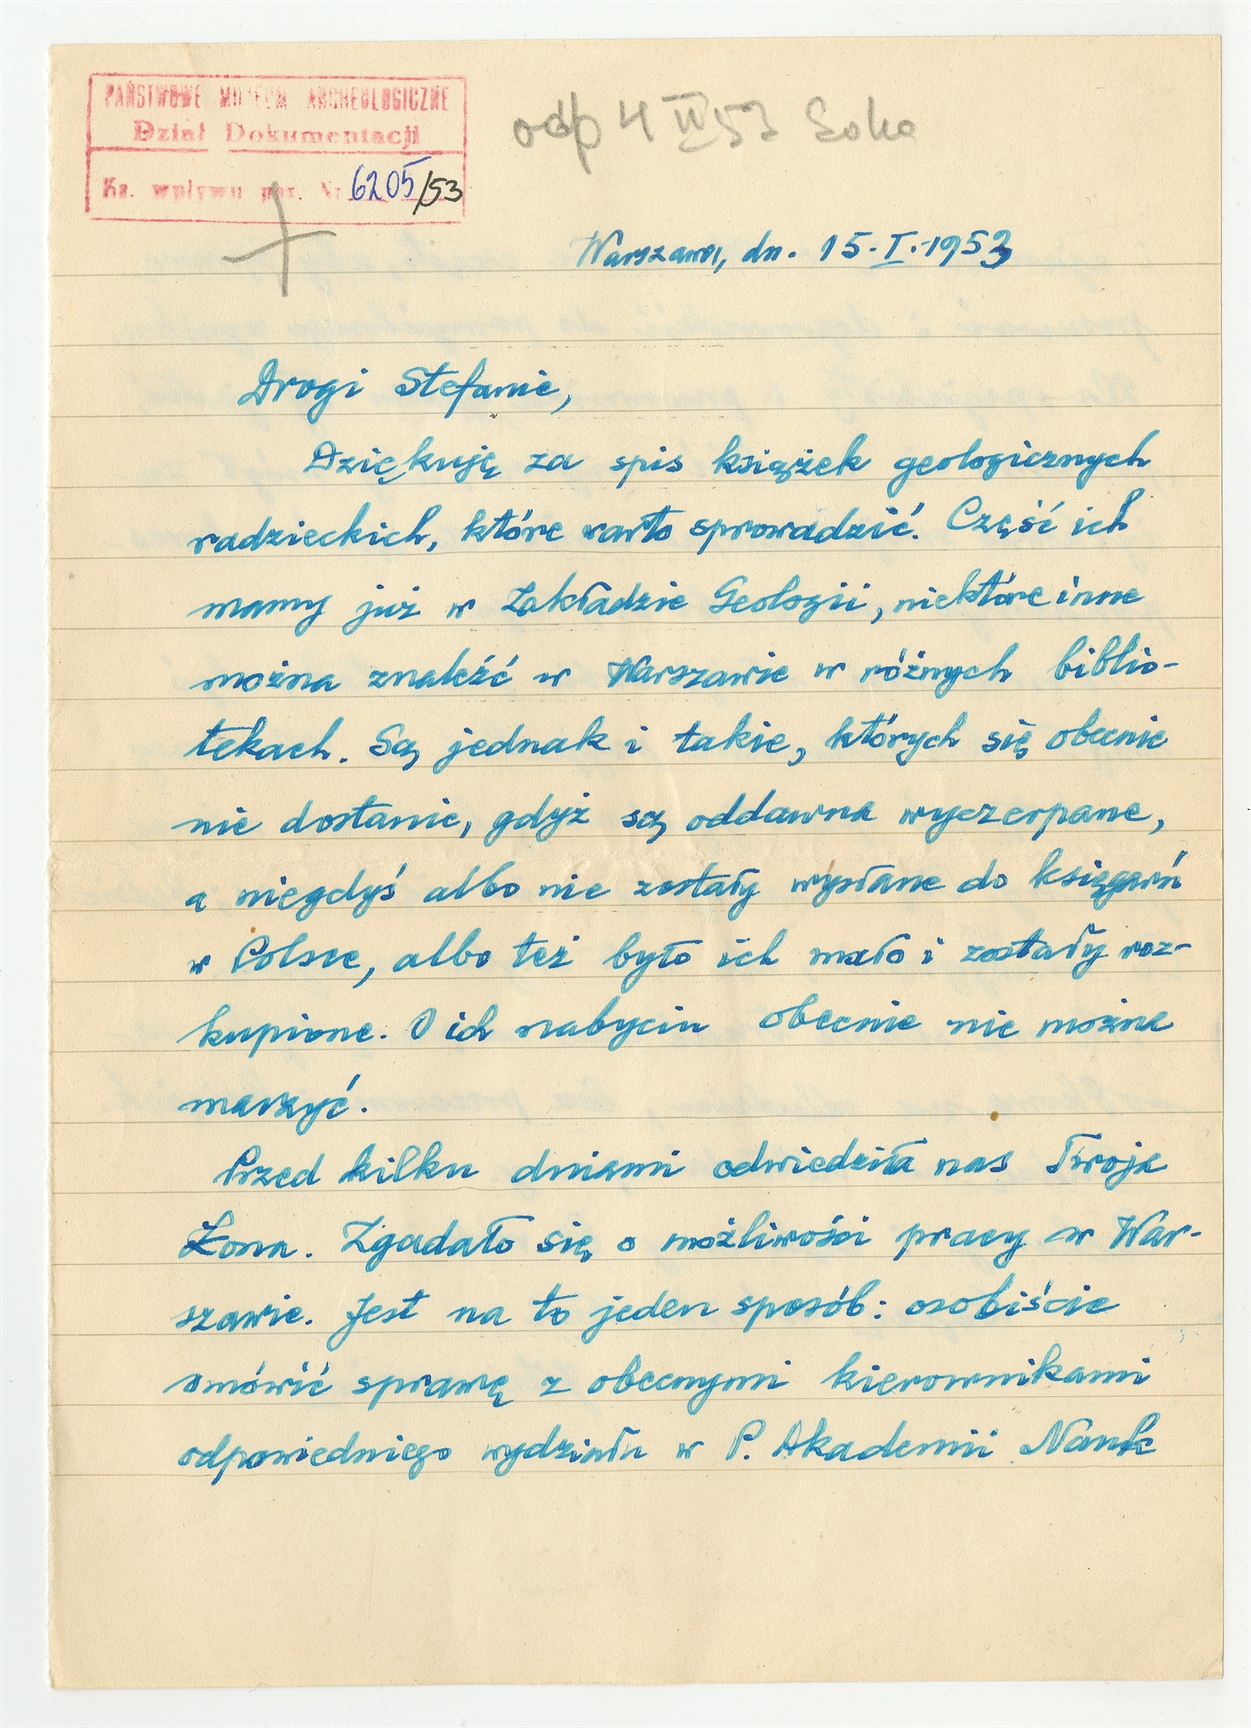 PAŃSTWOWE MUZEUM ARCHEOLOGICZNE
Dział Dokumentacji
Ks. wpływu poz. Nr 6205/53
odp 4 IV 53
Warszawa, dn. 15.I.1953
Drogi Stefanie,
Dziękuję za spis książek geologicznych
radzieckich, które warto sprowadzić. Część ich
mamy już w Zakładzie Geologii, niektóre inne
można znaleźć w Warszawie w różnych biblio-
tekach. Są jednak i takie, których się obecnie
nie dostanie, gdyż są oddawna wyczerpane,
a niegdyś albo nie zostały wysłane do księgarń
w Polsce, albo też było ich mało i zostały roz-
kupione. O ich nabyciu obecnie nie można
marzyć.
Przed kilku dniami odwiedziła nas Twoja
Żona. Zgadało się o możliwości pracy w War-
szawie. Jest na to jeden sposób: osobiście
omówić sprawę z obecnymi kierownikami
odpowiedniego wydziału w P. Akademii Nauk